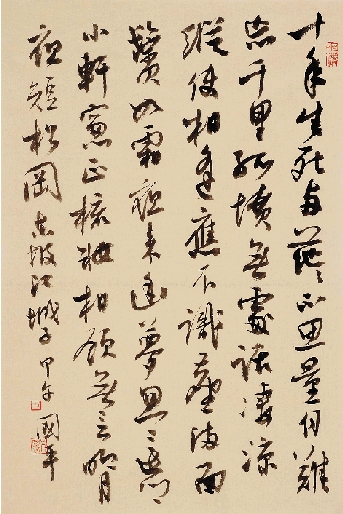 十年生死兩茫茫不思量自難
忘千里孤墳無處話淒涼
縱使相逢應不識塵滿面
鬢如霜夜來幽夢忽還鄉
小軒窗正梳妝相顧無言明月
夜短松岡東坡江城子甲午國平